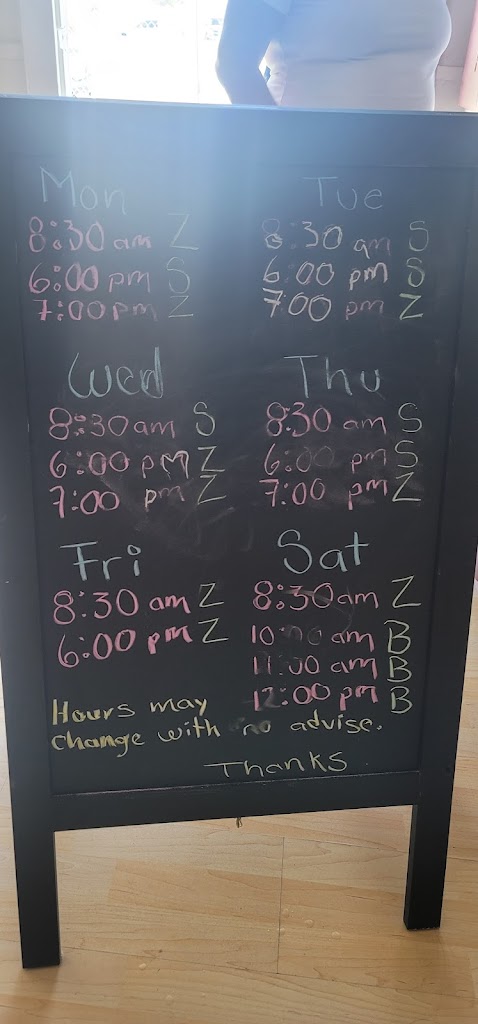 Mon
8:30 am Z
6:00 pm S
7:00 pm Z
Tue
8:30 am S
6:00 pm S
7:00 pm Z
Wed
8:30 am S
6:00 pm Z
7:00 pm Z
Thu
8:30 am S
6:00 pm S
7:00 pm Z
Fri
8:30 am Z
6:00 pm Z
Sat
8:30 am Z
10:00 am B
11:00 am B
12:00 pm B
Hours may
change with no advise.
Thanks.